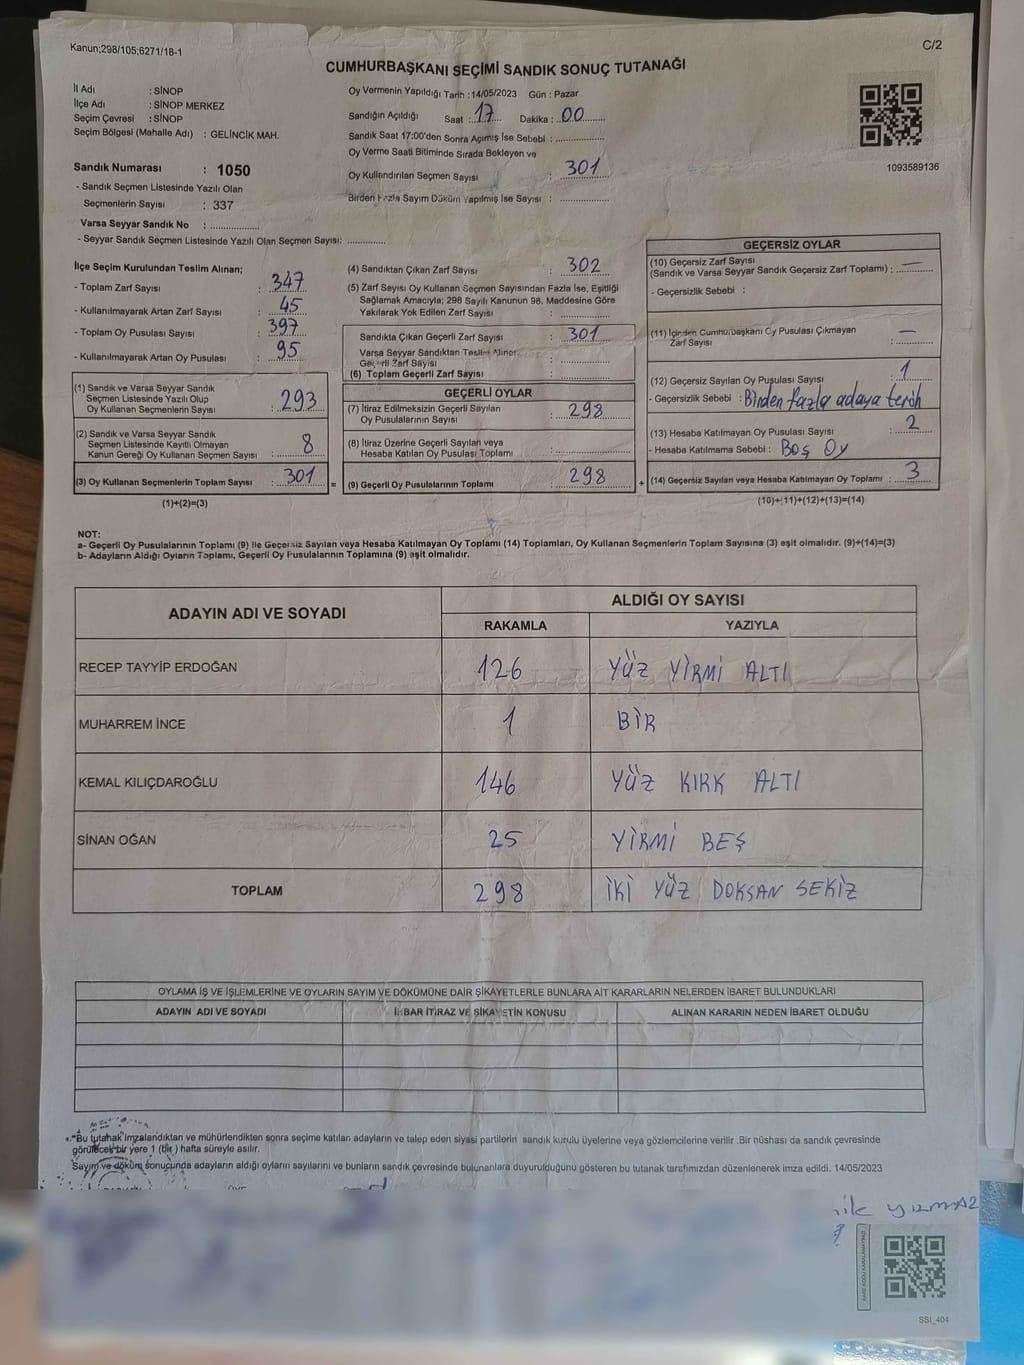 Kanun;298/105;6271/18-1
C/2
CUMHURBAŞKANI SEÇİMİ SANDIK SONUÇ TUTANAĞI
İl Adı : SİNOP
İlçe Adı : SİNOP MERKEZ
Seçim Çevresi : SİNOP
Seçim Bölgesi (Mahalle Adı) : GELİNCİK MAH.
Sandık Numarası : 1050
- Sandık Seçmen Listesinde Yazılı Olan
Seçmenlerin Sayısı : 337
Varsa Seyyar Sandık No : ..............
- Seyyar Sandık Seçmen Listesinde Yazılı Olan Seçmen Sayısı: ............
Oy Vermenin Yapıldığı Tarih : 14/05/2023 Gün : Pazar
Sandığın Açıldığı Saat : 17 Dakika : 00
Sandık Saat 17:00'den Sonra Açılmış İse Sebebi : ..............
Oy Verme Saati Bitiminde Sırada Bekleyen ve
Oy Kullandırılan Seçmen Sayısı : 301
Birden Fazla Sayım Döküm Yapılmış İse Sayısı : ..............
1093589136
İlçe Seçim Kurulundan Teslim Alınan;
- Toplam Zarf Sayısı : 347
- Kullanılmayarak Artan Zarf Sayısı : 45
- Toplam Oy Pusulası Sayısı : 397
- Kullanılmayarak Artan Oy Pusulası : 95
(1) Sandık ve Varsa Seyyar Sandık
Seçmen Listesinde Yazılı Olup
Oy Kullanan Seçmenlerin Sayısı : 293
(2) Sandık ve Varsa Seyyar Sandık
Seçmen Listesinde Kayıtlı Olmayan
Kanun Gereği Oy Kullanan Seçmen Sayısı : 8
(3) Oy Kullanan Seçmenlerin Toplam Sayısı : 301 =
(1)+(2)=(3)
(4) Sandıktan Çıkan Zarf Sayısı : 302
(5) Zarf Sayısı Oy Kullanan Seçmen Sayısından Fazla İse, Eşitliği
Sağlamak Amacıyla; 298 Sayılı Kanunun 98. Maddesine Göre
Yakılarak Yok Edilen Zarf Sayısı : ..............
Sandıkta Çıkan Geçerli Zarf Sayısı : 301
Varsa Seyyar Sandıktan Teslim Alınan
Geçerli Zarf Sayısı : ..............
(6) Toplam Geçerli Zarf Sayısı : ..............
GEÇERLİ OYLAR
(7) İtiraz Edilmeksizin Geçerli Sayılan
Oy Pusulalarının Sayısı : 298
(8) İtiraz Üzerine Geçerli Sayılan veya
Hesaba Katılan Oy Pusulası Toplamı : ..............
(9) Geçerli Oy Pusulalarının Toplamı : 298 +
GEÇERSİZ OYLAR
(10) Geçersiz Zarf Sayısı
(Sandık ve Varsa Seyyar Sandık Geçersiz Zarf Toplamı) : —
- Geçersizlik Sebebi :
(11) İçinden Cumhurbaşkanı Oy Pusulası Çıkmayan
Zarf Sayısı : —
(12) Geçersiz Sayılan Oy Pusulası Sayısı : 1
- Geçersizlik Sebebi : Birden fazla adaya tercih
(13) Hesaba Katılmayan Oy Pusulası Sayısı : 2
- Hesaba Katılmama Sebebi : Boş Oy
(14) Geçersiz Sayılan veya Hesaba Katılmayan Oy Toplamı : 3
(10)+(11)+(12)+(13)=(14)
NOT:
a- Geçerli Oy Pusulalarının Toplamı (9) ile Geçersiz Sayılan veya Hesaba Katılmayan Oy Toplamı (14) Toplamları, Oy Kullanan Seçmenlerin Toplam Sayısına (3) eşit olmalıdır. (9)+(14)=(3)
b- Adayların Aldığı Oyların Toplamı, Geçerli Oy Pusulalarının Toplamına (9) eşit olmalıdır.
ADAYIN ADI VE SOYADI
ALDIĞI OY SAYISI
RAKAMLA YAZIYLA
RECEP TAYYİP ERDOĞAN 126 YÜZ YİRMİ ALTI
MUHARREM İNCE 1 BİR
KEMAL KILIÇDAROĞLU 146 YÜZ KIRK ALTI
SİNAN OĞAN 25 YİRMİ BEŞ
TOPLAM 298 İKİ YÜZ DOKSAN SEKİZ
OYLAMA İŞ VE İŞLEMLERİNE VE OYLARIN SAYIM VE DÖKÜMÜNE DAİR ŞİKAYETLERLE BUNLARA AİT KARARLARIN NELERDEN İBARET BULUNDUKLARI
ADAYIN ADI VE SOYADI İHBAR İTİRAZ VE ŞİKAYETİN KONUSU ALINAN KARARIN NEDEN İBARET OLDUĞU
"Bu tutanak imzalandıktan ve mühürlendikten sonra seçime katılan adayların ve talep eden siyasi partilerin sandık kurulu üyelerine veya gözlemcilerine verilir .Bir nüshası da sandık çevresinde
görülecek bir yere 1 (bir) hafta süreyle asılır.
Sayım ve döküm sonucunda adayların aldığı oyların sayılarını ve bunların sandık çevresinde bulunanlara duyurulduğunu gösteren bu tutanak tarafımızdan düzenlenerek imza edildi. 14/05/2023
YILMAZ
KARE KODU KARALAMAYINIZ
SSI_404